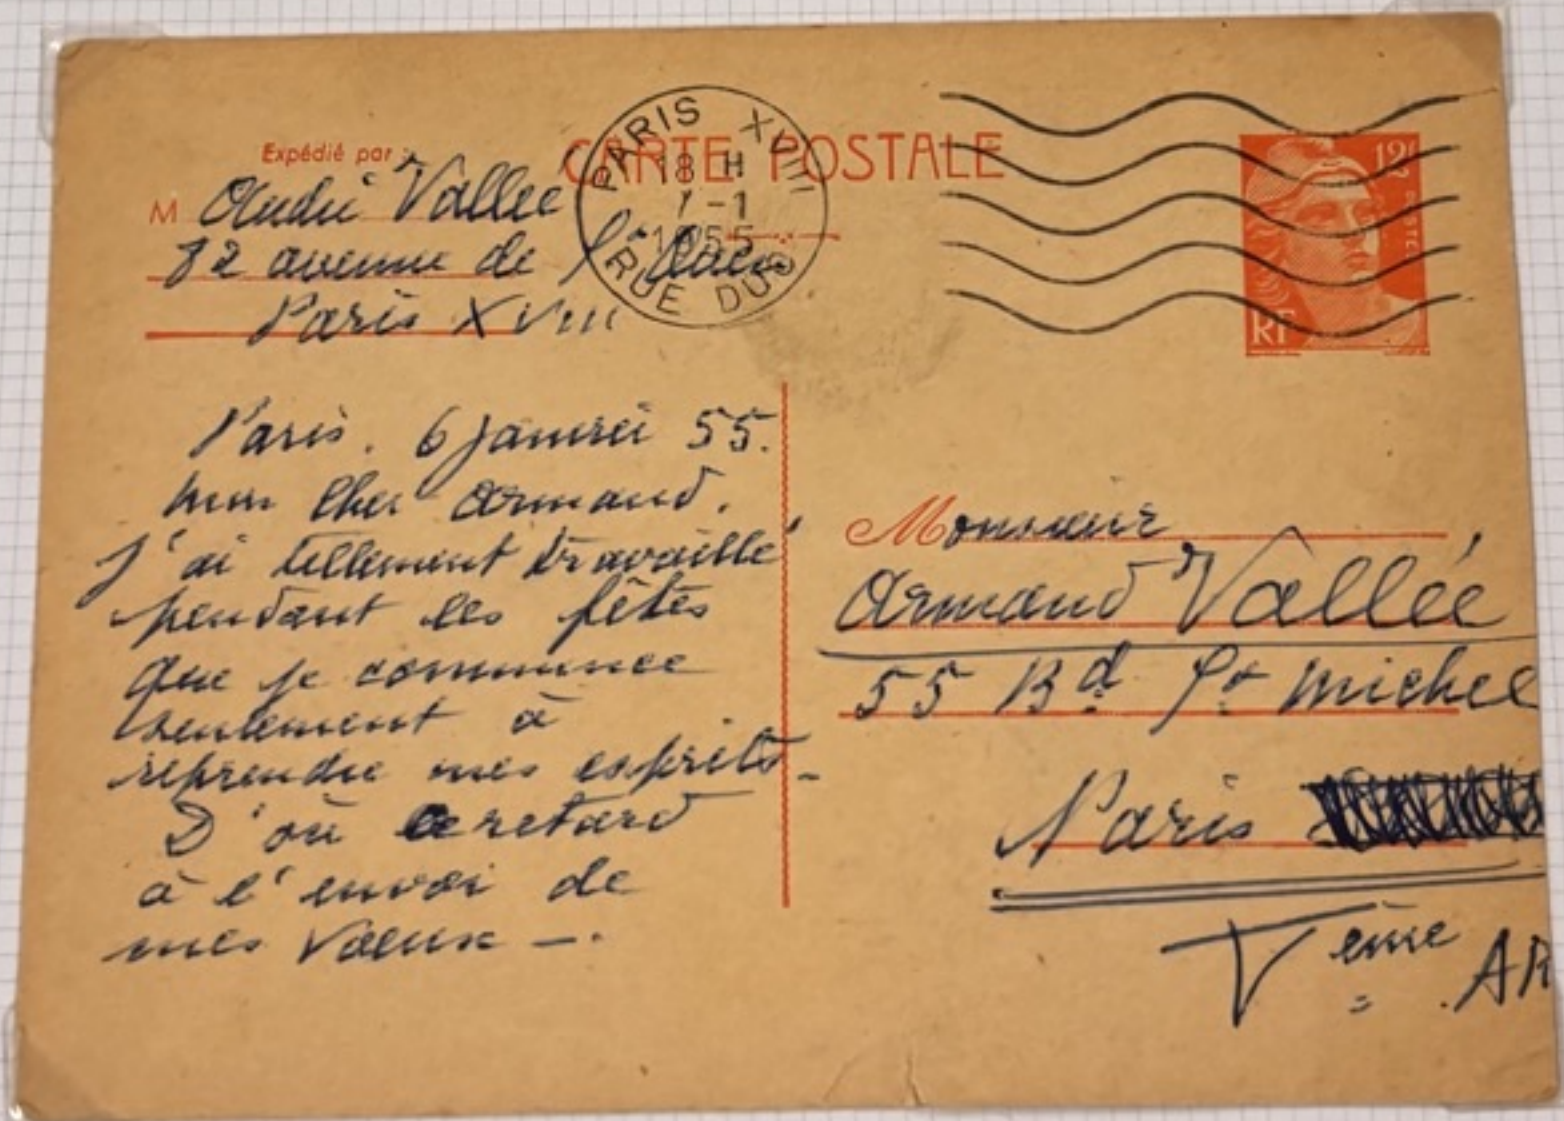 Expédié par :
CARTE POSTALE
PARIS XVIII
18 H
7 - 1
1955
RUE DUC
12f
POSTES
RF
M André Vallée
82 avenue de St Ouen
Paris XVIII
Paris. 6 Janvier 55.
mon cher Armand.
J'ai tellement travaillé
pendant les fêtes
que je commence
seulement à
reprendre mes esprits -
D'où ce retard
à l'envoi de
mes vœux - .
Monsieur
Armand Vallée
55 Bd St Michel
Paris
Vème . AR